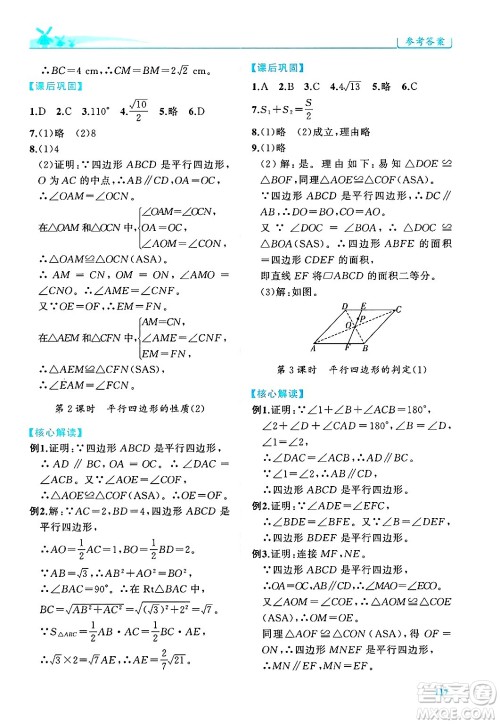 参考答案
∴BC=4 cm,∴CM=BM=2√2 cm.
【课后巩固】
1.D 2.C 3.110° 4.√10/2 5.略 6.D
7.(1)略 (2)8
8.(1)4
(2)证明:∵四边形 ABCD 是平行四边形,
O 为 AC 的中点,∴AM∥CN,OA=OC.
∴∠OAM=∠OCN.
在△AOM 和△CON 中{∠OAM=∠OCN, OA=OC, ∠AOM=∠CON,
∴△AOM≌△CON(ASA).
∴AM=CN,OM=ON,∠AMO=
∠CNO.∴∠AME=∠CNF.
又∵OE=OF,∴EM=FN.
在△AEM 和△CFN 中{AM=CN, ∠AME=∠CNF, EM=FN,
∴△AEM≌△CFN(SAS).
∴∠EAM=∠FCN.
第 2 课时 平行四边形的性质(2)
【核心解读】
例1.证明:∵四边形 ABCD 是平行四边形,
∴AD∥BC,OA=OC.∴∠OAE=
∠OCF.又∵∠AOE=∠COF,
∴△AOE≌△COF(ASA).∴OE=OF.
例2.解:∵AC=2,四边形 ABCD 是平行四边形,
∴AO=1/2 AC=1/2×2=1.
∵AB=√3,∴AB²+AO²=BO².
∴∠BAC=90°.∴在 Rt△BAC 中,
BC=√AB²+AC²=√(√3)²+2²=√7.
∵S△ABC=1/2 AB·AC=1/2 BC·AE,
∴√3×2=√7 AE.∴AE=2√21/7.
【课后巩固】
1.A 2.B 3.C 4.4√13 5.略 6.B
7.S₁+S₂=S/2
8.(1)略 (2)成立,理由略
9.(1)略
(2)解:是. 理由如下:易知△DOE≌
△BOF,同理△AOE≌△COF(ASA).
又∵∠DOC=∠BOA,∴△DOC≌
△BOA.∴四边形 ABFE 的面积
=四边形 CDEF 的面积,
即直线 EF 将▱ABCD 的面积二等分.
(3)解:如图.
D E C
P
O
A F B
第 3 课时 平行四边形的判定(1)
【核心解读】
例1.证明:∵∠1+∠B+∠ACB=180°,
∠2+∠D+∠CAD=180°,∠B=∠D,
∠1=∠2,∴∠ACB=∠CAD.
∴AD∥BC.∵∠1=∠2,∴AB∥CD.
∴四边形 ABCD 是平行四边形.
例2.证明:∵∠1=∠2,∴AD∥BC.
又∵AD=BC,
∴四边形 ABCD 是平行四边形.
例3.证明:连接 MF,NE.
∵四边形 ABCD 是平行四边形,
∴OA=OC,AD∥BC.∴∠CAE=
∠ACF.又∵∠EOA=∠FOC,
∴△AOE≌△COF.∴OE=OF.
同理△AON≌△COM.∴ON=OM.
∴四边形 MNEF 是平行四边形.
∴MN∥EF,且 MN=EF.